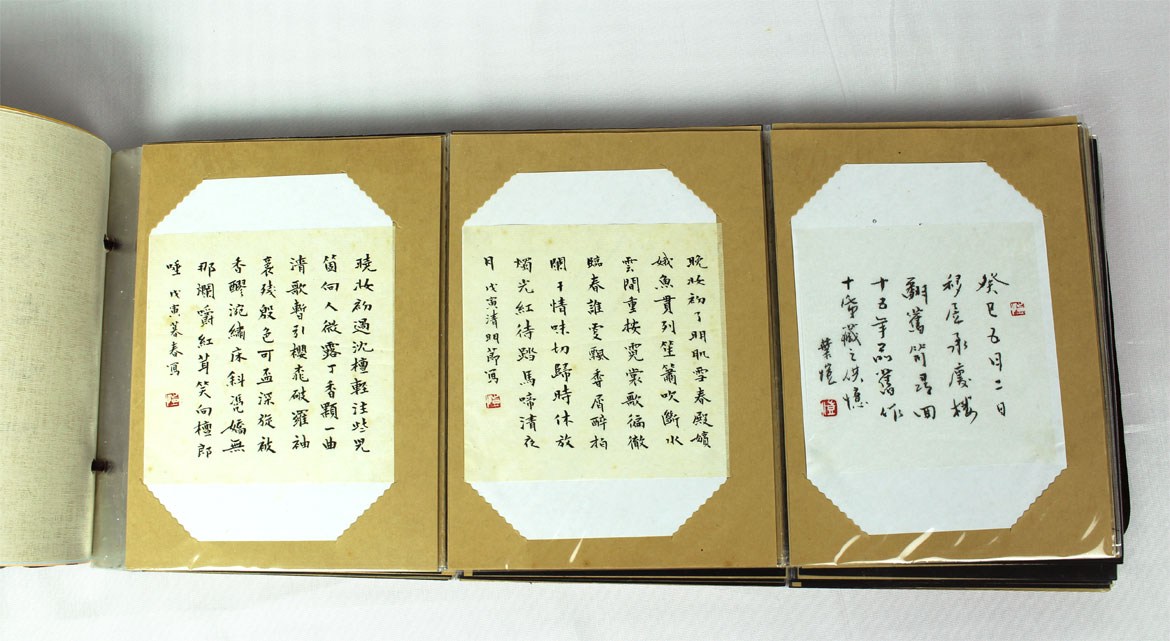 癸巳五月二日
移居承慶樓
翻舊笥回
十五年舊作
十幀藏之供憶
葉愷
晚妝初了明肌雪春殿嬪
娥魚貫列笙簫吹斷水
雲間重按霓裳歌徧徹
臨春誰更飄香屑醉拍
闌干情味切歸時休放
燭光紅待踏馬啼清夜
月 戊寅清明節寫
曉妝初過沈檀輕注些兒
箇向人微露丁香顆一曲
清歌暫引櫻桃破羅袖
裛殘殷色可盃深旋被
香醪涴繡床斜凭嬌無
那爛嚼紅茸笑向檀郎
唾 戊寅暮春寫